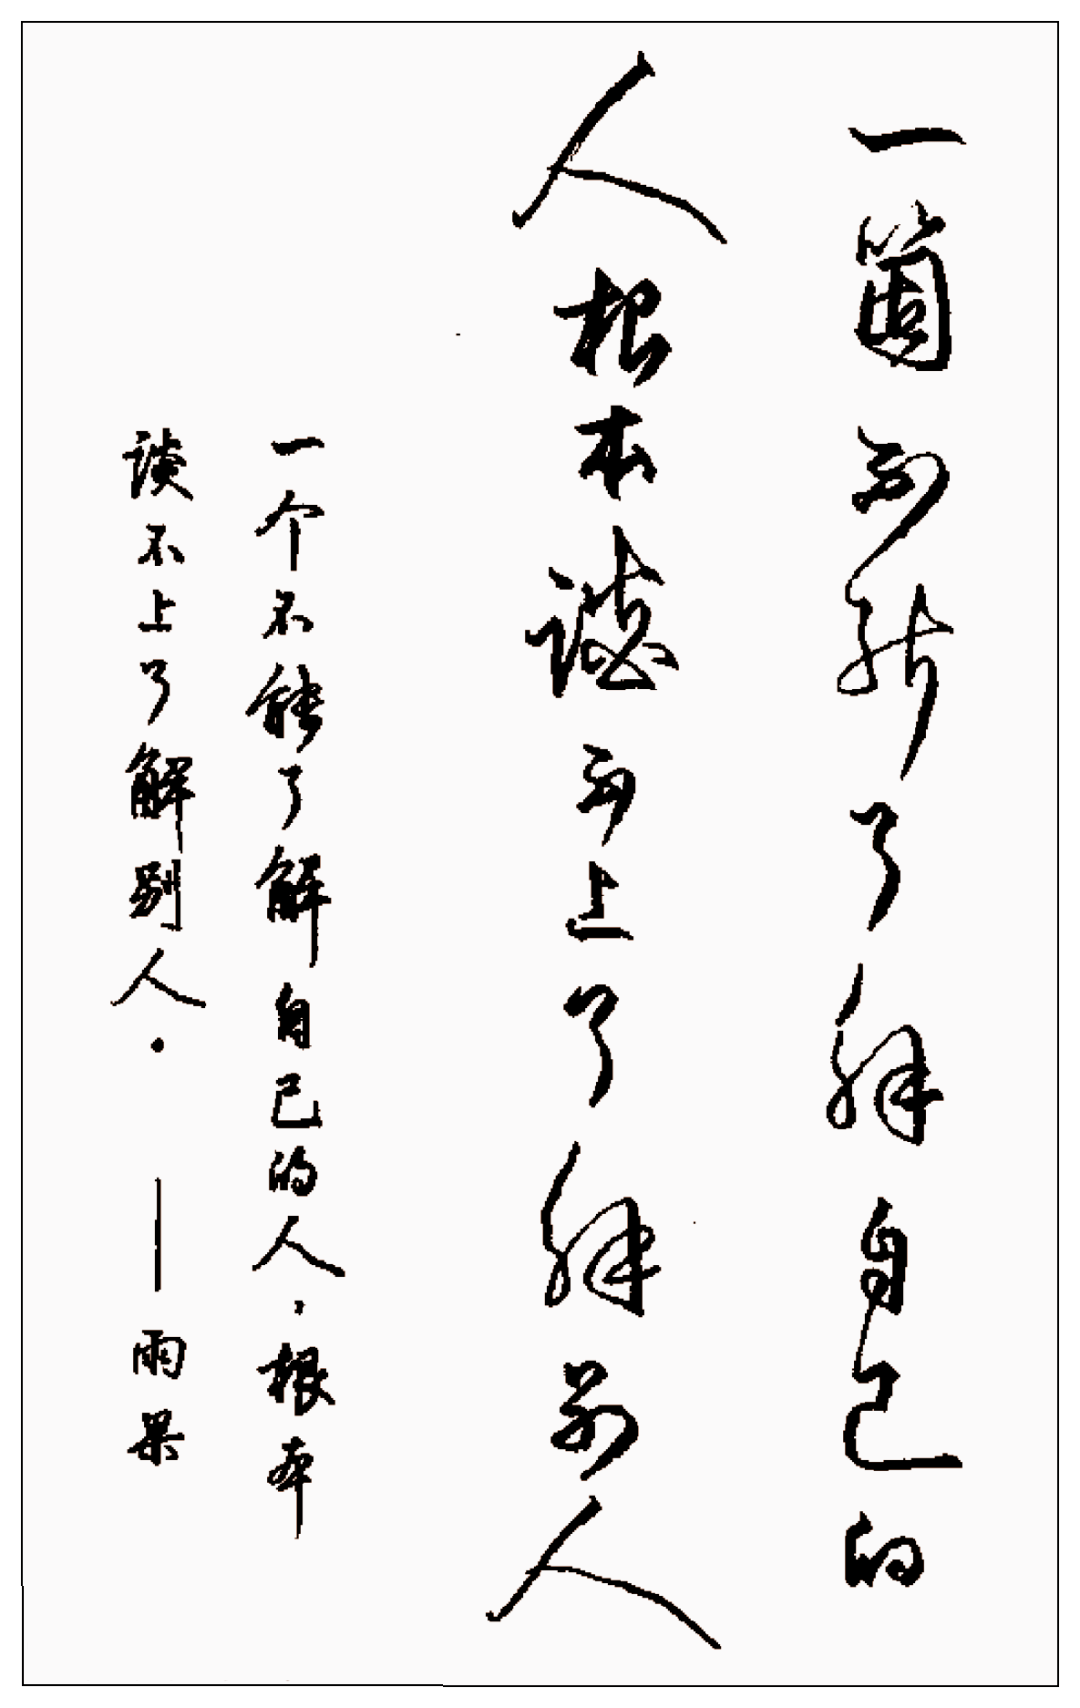 一箇不能了解自己的
人根本谈不上了解别人
一个不能了解自己的人，根本
谈不上了解别人。——雨果